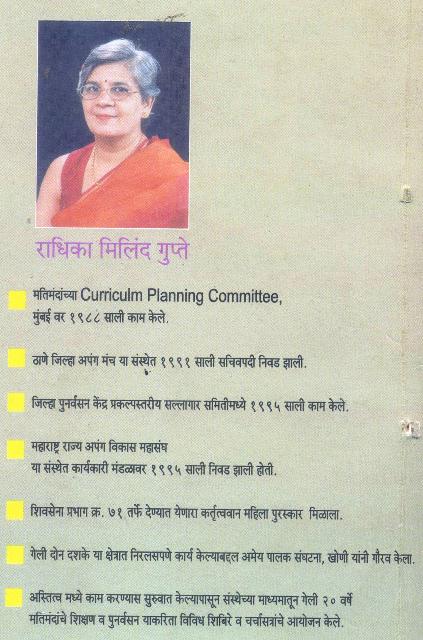 राधिका मिलिंद गुप्ते
मतिमंदांच्या Curriculm Planning Committee,
मुंबई वर १९८८ साली काम केले.
ठाणे जिल्हा अपंग मंच या संस्थेत १९९१ साली सचिवपदी निवड झाली.
जिल्हा पुनर्वसन केंद्र प्रकल्पस्तरीय सल्लागार समितीमध्ये १९९५ साली काम केले.
महाराष्ट्र राज्य अपंग विकास महासंघ
या संस्थेत कार्यकारी मंडळावर १९९५ साली निवड झाली होती.
शिवसेना प्रभाग क्र. ७१ तर्फे देण्यात येणारा कर्तृत्ववान महिला पुरस्कार मिळाला.
गेली दोन दशके या क्षेत्रात निरलसपणे कार्य केल्याबद्दल अमेय पालक संघटना, खोणी यांनी गौरव केला.
अस्तित्व मध्ये काम करण्यास सुरुवात केल्यापासून संस्थेच्या माध्यमातून गेली २० वर्षे
मतिमंदांचे शिक्षण व पुनर्वसन याकरिता विविध शिबिरे व चर्चासत्रांचे आयोजन केले.